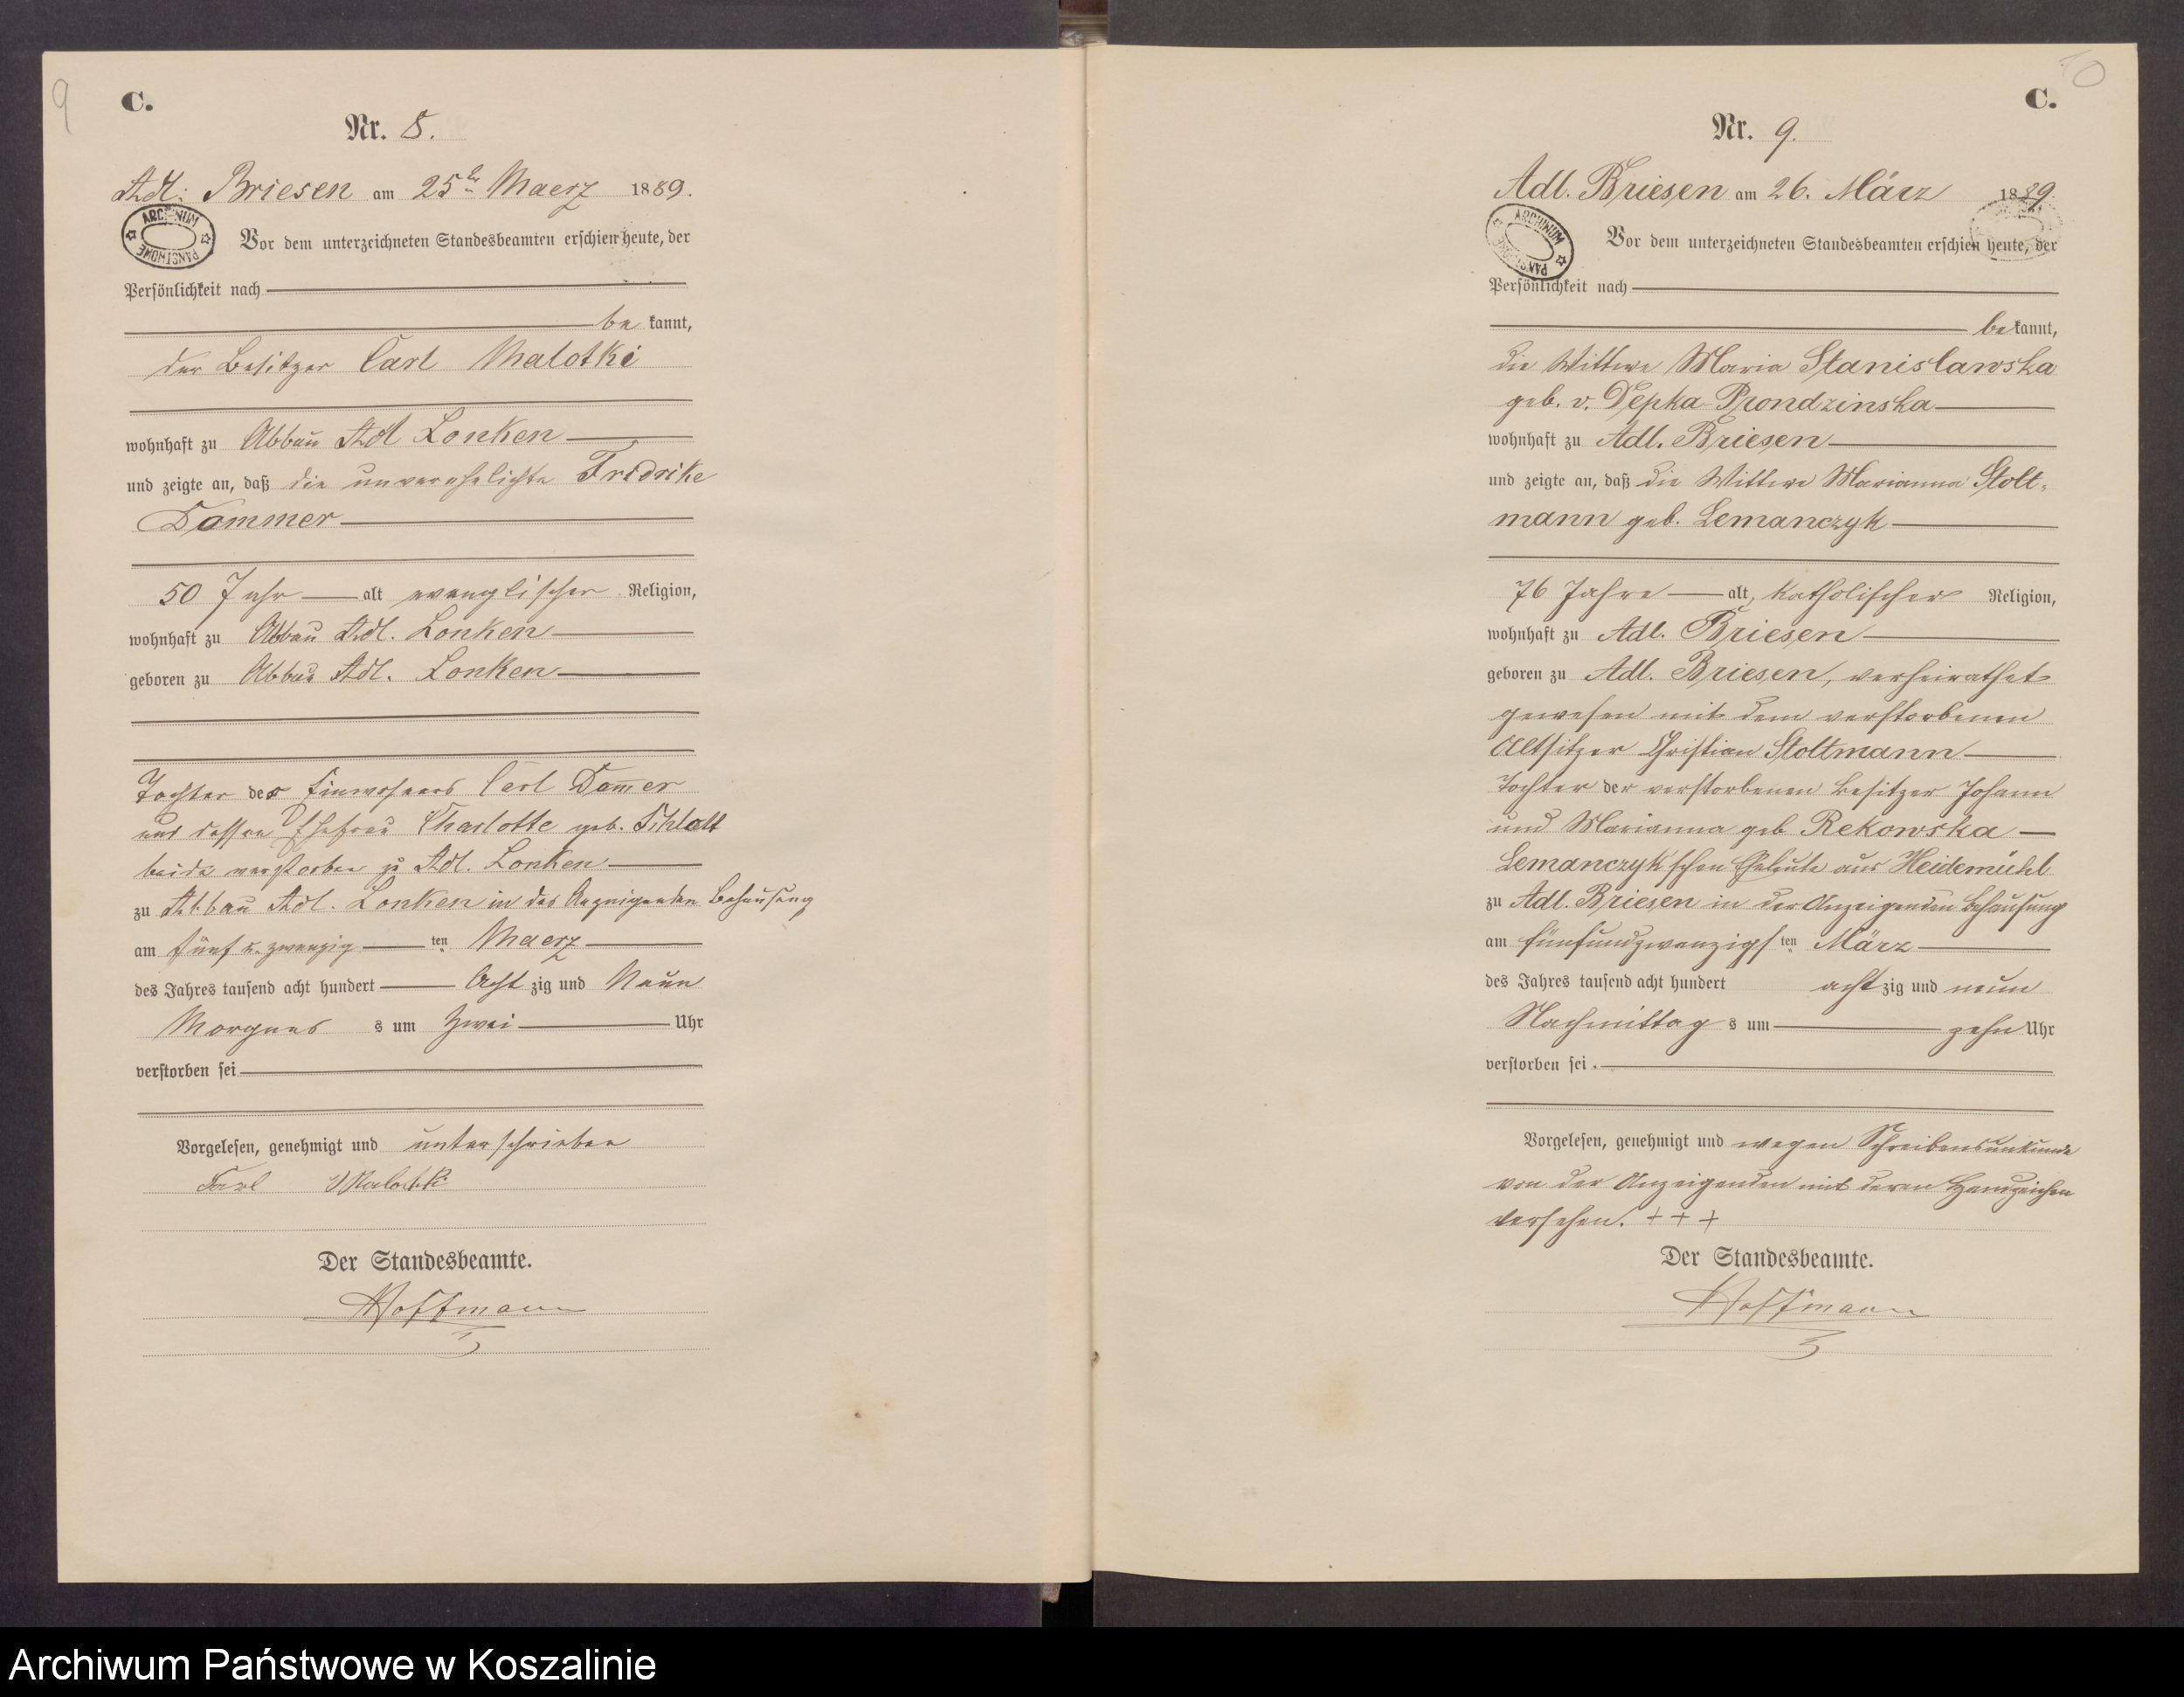 9
C.
Nr. 8.
Adl: Briesen am 25ten Maerz 1889.
ARCHIWUM PAŃSTWOWE
Vor dem unterzeichneten Standesbeamten erschien heute, der
Persönlichkeit nach
be kannt,
der Besitzer Carl Malotki
wohnhaft zu Abbau Adl Lonken
und zeigte an, daß die unverehelichte Fredrike
Dammer
50 Jahr alt evanglischer Religion,
wohnhaft zu Abbau Adl. Lonken
geboren zu Abbau Adl. Lonken
Tochter des Einwohners Carl Dam̄er
und dessen Ehefrau Charlotte geb.
beide verstorben zu Adl. Lonken
zu Abbau Adl. Lonken in des Anzeigenden Behausung
am fünf u. zwanzig ten Maerz
des Jahres tausend acht hundert Acht zig und Neun
Morgens s um Zwei Uhr
verstorben sei
Vorgelesen, genehmigt und unterschrieben
Carl Malotki
Der Standesbeamte.
Hoffmann
10
C.
Nr. 9.
Adl. Briesen am 26. März 1889.
ARCHIWUM PAŃSTWOWE
Vor dem unterzeichneten Standesbeamten erschien heute, der
Persönlichkeit nach
be kannt,
die Wittwe Maria Stanislawska
geb. v. Depka-Prondzinska
wohnhaft zu Adl. Briesen
und zeigte an, daß die Wittwe Marianna Stolt-
mann geb. Lemanczyk
76 Jahre alt, katholischer Religion,
wohnhaft zu Adl. Briesen
geboren zu Adl. Briesen, verheirathet
gewesen mit dem verstorbenen
Altsitzer Christian Stoltmann
Tochter der verstorbenen Besitzer Johann
und Marianna geb Rekowska
Lemanczyk'schen Eheleute aus Heidemühl
zu Adl. Briesen in der Anzeigenden Behausung
am fünfundzwanzigs ten März
des Jahres tausend acht hundert acht zig und neun
Nachmittag s um zehn Uhr
verstorben sei.
Vorgelesen, genehmigt und wegen Schreibensunkunde
von der Anzeigenden mit deren Handzeichen
versehen. + + +
Der Standesbeamte.
Hoffmann
Archiwum Państwowe w Koszalinie